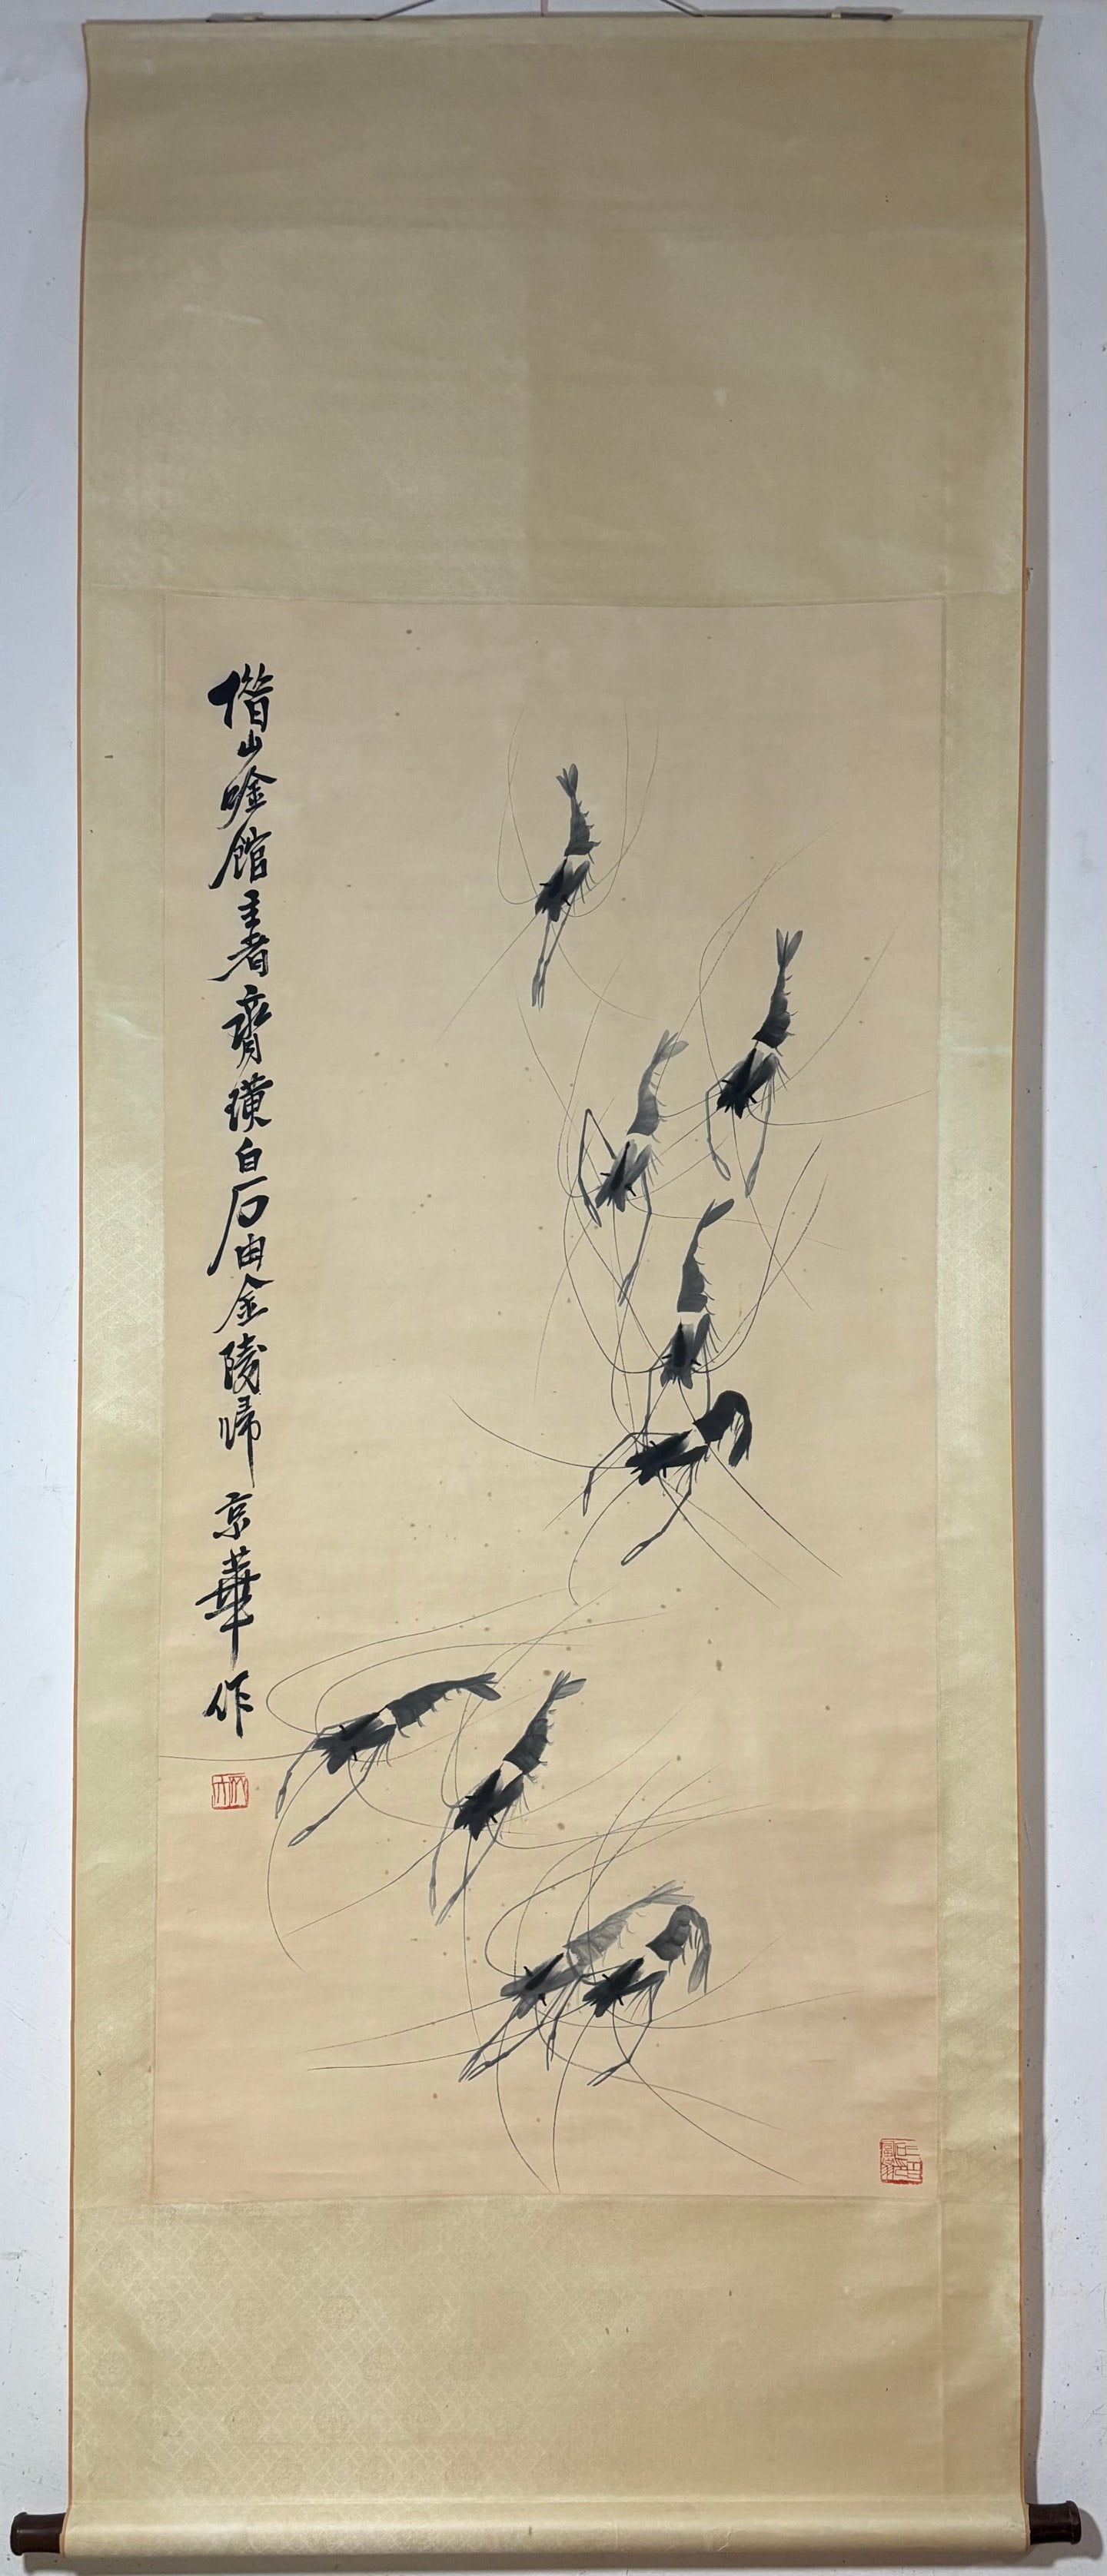 借山唫館主者齊璜白石由金陵歸京華作